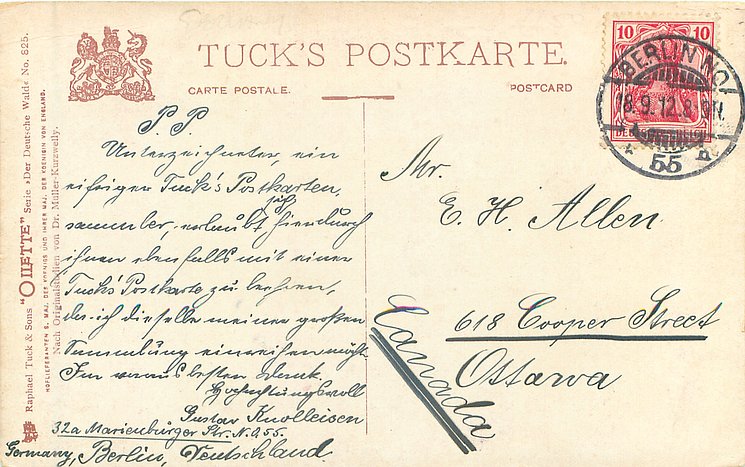 TUCK'S POSTKARTE.
CARTE POSTALE.
POSTCARD
10 10
BERLIN NO
18.9.12.8-9N.
55
Raphael Tuck & Sons "OILETTE" Serie »Der Deutsche Wald« No. 825.
HOFLIEFERANTEN S. MAJ. DES KOENIGS UND IHRER MAJ. DER KOENIGIN VON ENGLAND.
Nach Originalstudien von Dr. Müller-Kurzwelly.
P. P.
Unterzeichneter, ein
eifriger Tuck's Postkarten,
sammler, erlaubt sich hierdurch
ihnen ebenfalls mit einer
Tuck's Postkarte zu beehren,
da ich dieselbe meiner großen
Sammlung einreihen möchte
Im voraus besten Dank.
Hochachtungsvoll
Gustav Knolleisen
32a Marienburger Str. N.O.55.
Germany, Berlin, Deutschland.
Mr.
E. H. Allen
618 Cooper Street
Ottawa
Canada